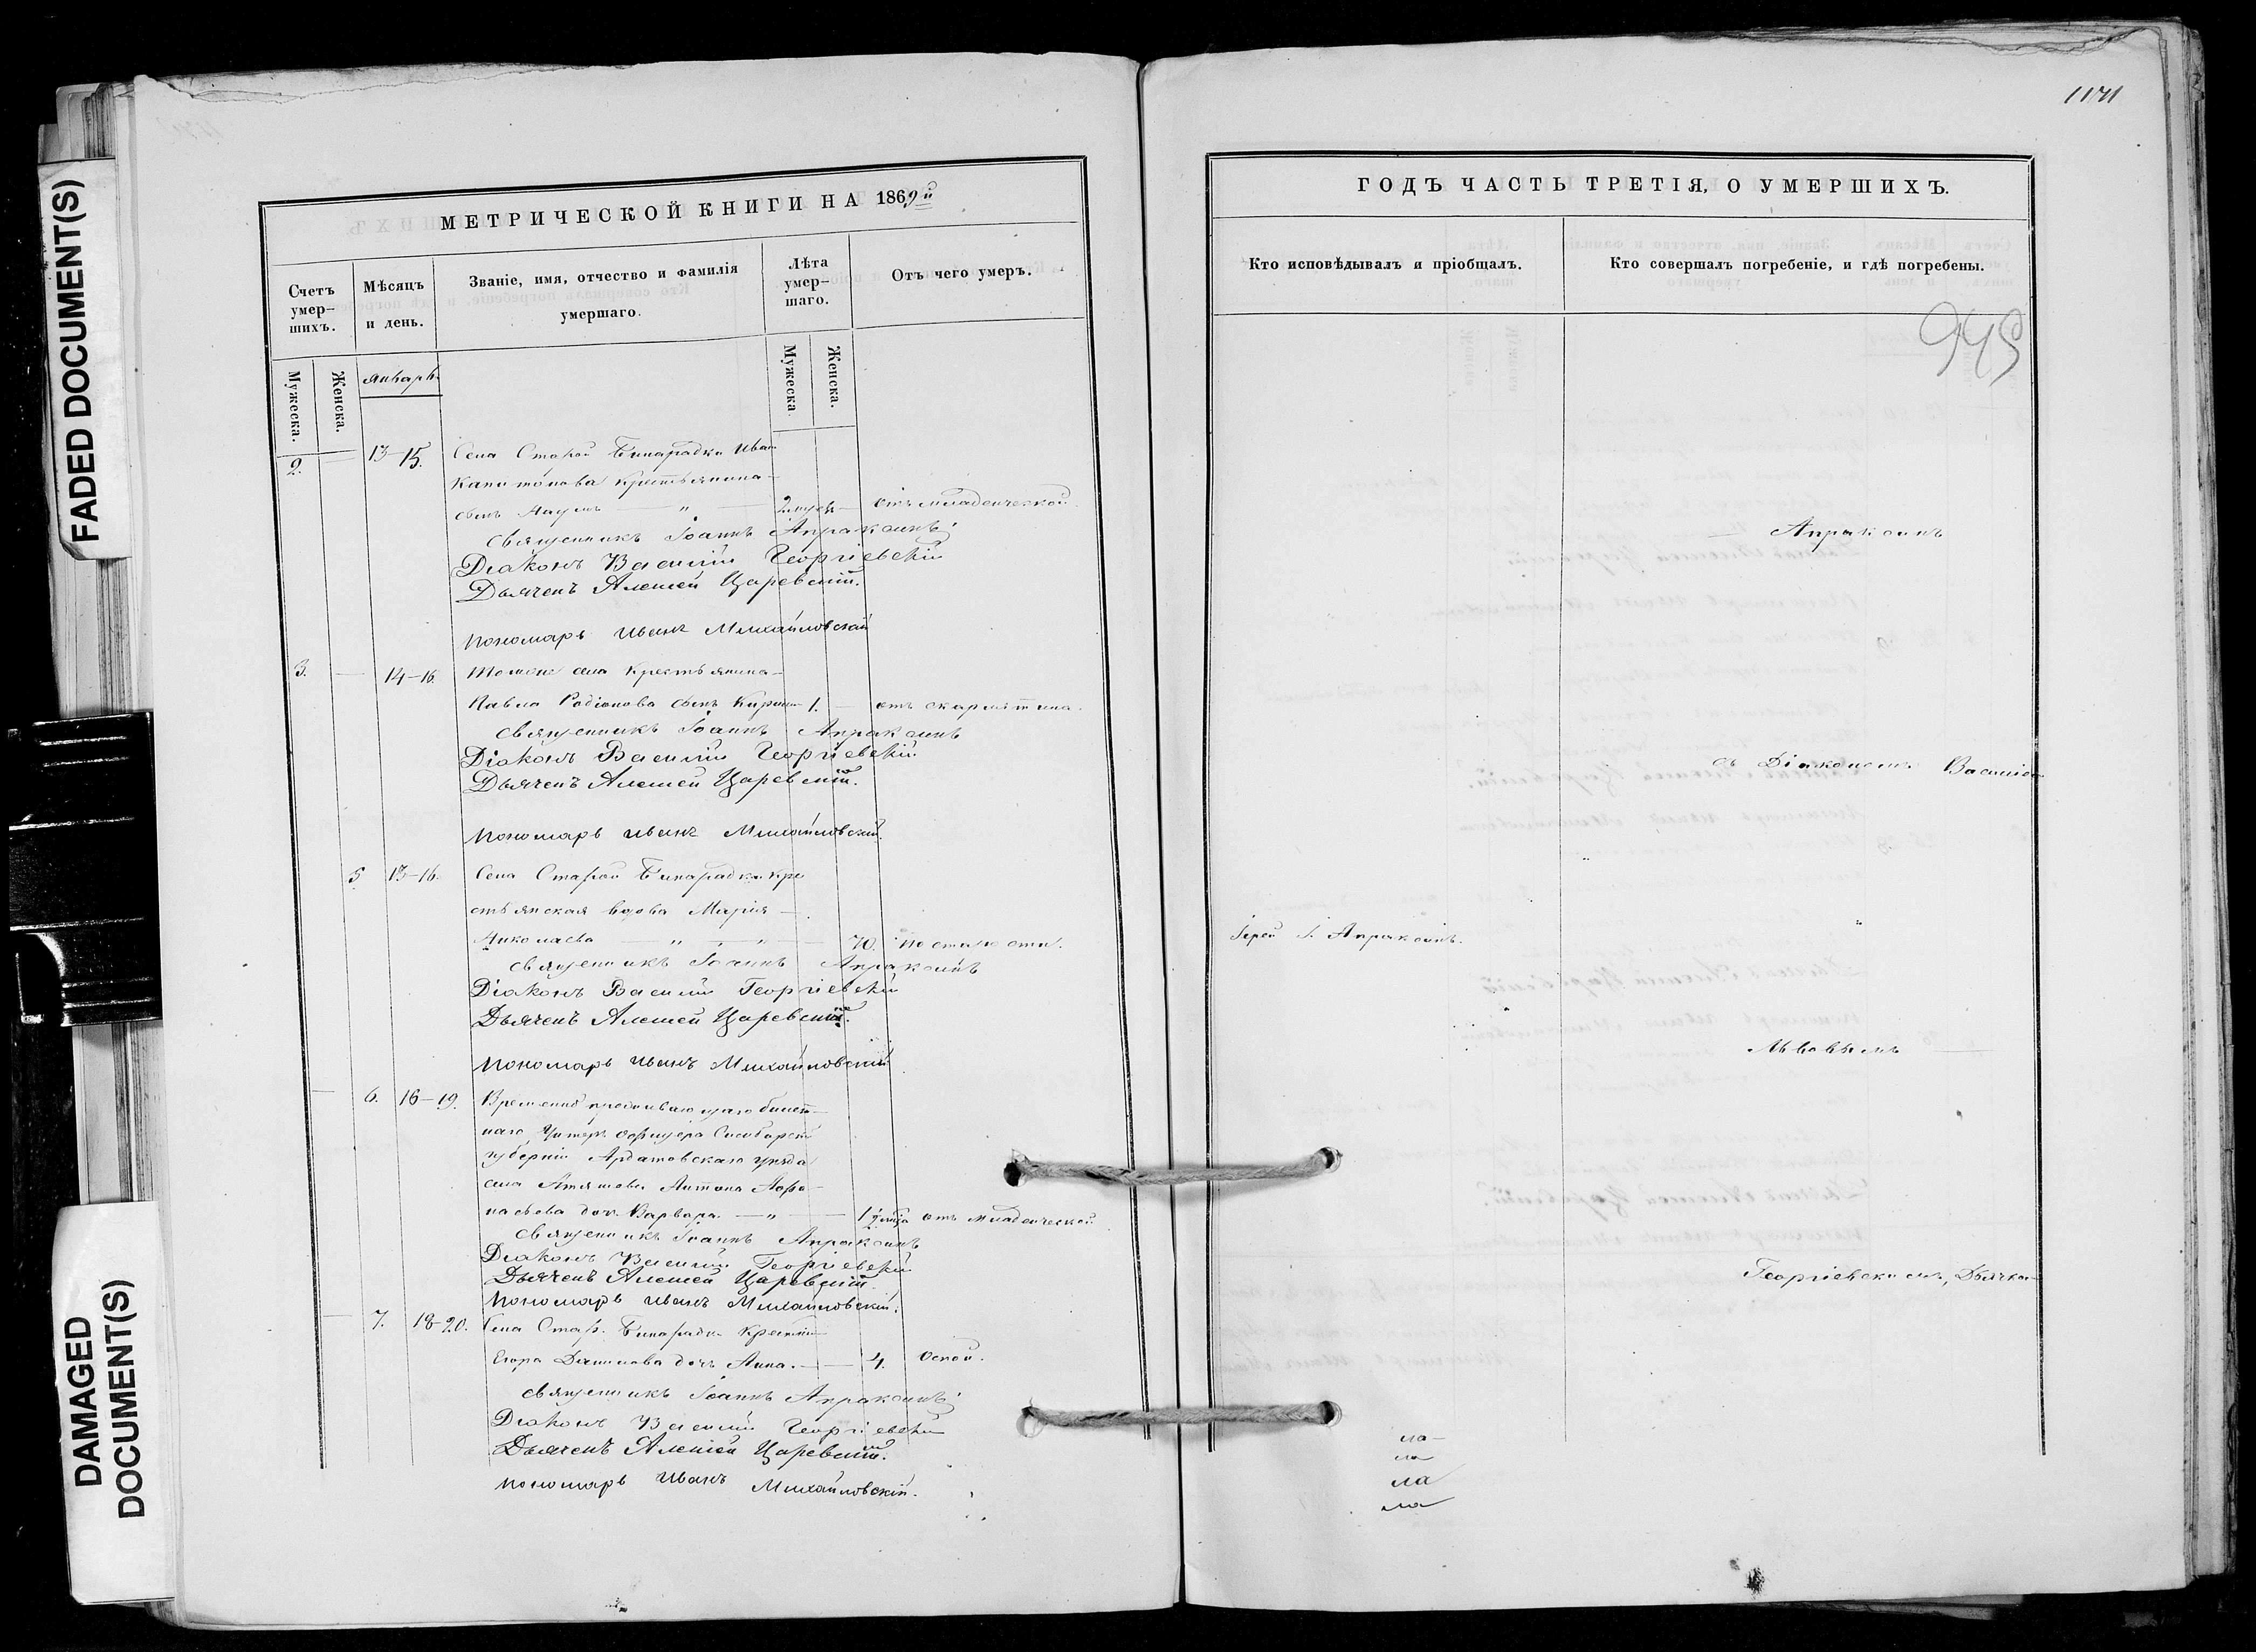 FADED DOCUMENT(S)
DAMAGED
DOCUMENT(S)
МЕТРИЧЕСКОЙ КНИГИ НА 1869й
Счетъ умер-шихъ.
Мѣсяцъ и день.
Званіе, имя, отчество и фамилія умершаго.
Лѣта умер-шаго.
Отъ чего умеръ.
Мужеска.
Женска.
Январь
Мужеска
Женска.
2. — 13-15. Села Старой Бинарадки Иван
Капитонова крестьянина
сынъ Наумъ — " — отъ младенческой
Священникъ Іоаннъ Апраксинъ
Діаконъ Василій Георгіевскій
Дьячекъ Алексей Царевскій.
Пономарь Иванъ Михайловскій
3. — 14-16. Тогоже села крестьянина
Павла Родіонова сынъ 1. — отъ скарлятина.
Священникъ Іоаннъ Апраксинъ
Діаконъ Василій Георгіевскій
Дьячекъ Алексей Царевскій.
Пономарь Иванъ Михайловскій.
5 13-16. Села Старой Бинарадки кре
стьянская вдова Марія —
Николаева — " — " — 70. по старости.
Священникъ Іоаннъ Апраксинъ
Діаконъ Василій Георгіевскій
Дьячекъ Алексей Царевскій.
Пономарь Иванъ Михайловскій
— 6. 16-19. Временно проживающаго билет-
наго Унтеръ офицера Симбирской
губерніи Ардатовскаго уѣзда
села Антона Афо-
насьева дочь Варвара — " — отъ младенческой
Священникъ Іоаннъ Апраксинъ
Діаконъ Василій Георгіевскій
Дьячекъ Алексей Царевскій
Пономарь Иванъ Михайловскій.
— 7. 18-20. Села Стар. Бинарадки крестьян
Егора Данилова дочь Анна. — — 4. Оспой.
Священникъ Іоаннъ Апраксинъ
Діаконъ Василій Георгіевскій
Дьячекъ Алексей Царевскій.
Пономарь Иванъ Михайловскій.
1171
ГОДЪ ЧАСТЬ ТРЕТІЯ, О УМЕРШИХЪ.
Кто исповѣдывалъ и пріобщалъ.
Кто совершалъ погребеніе, и гдѣ погребены.
945
Апраксинъ
съ Діакономъ Василіем
Іерей І. Апраксинъ.
Георгіевскимъ, Дьячко-
ла-
ла
ла
ла